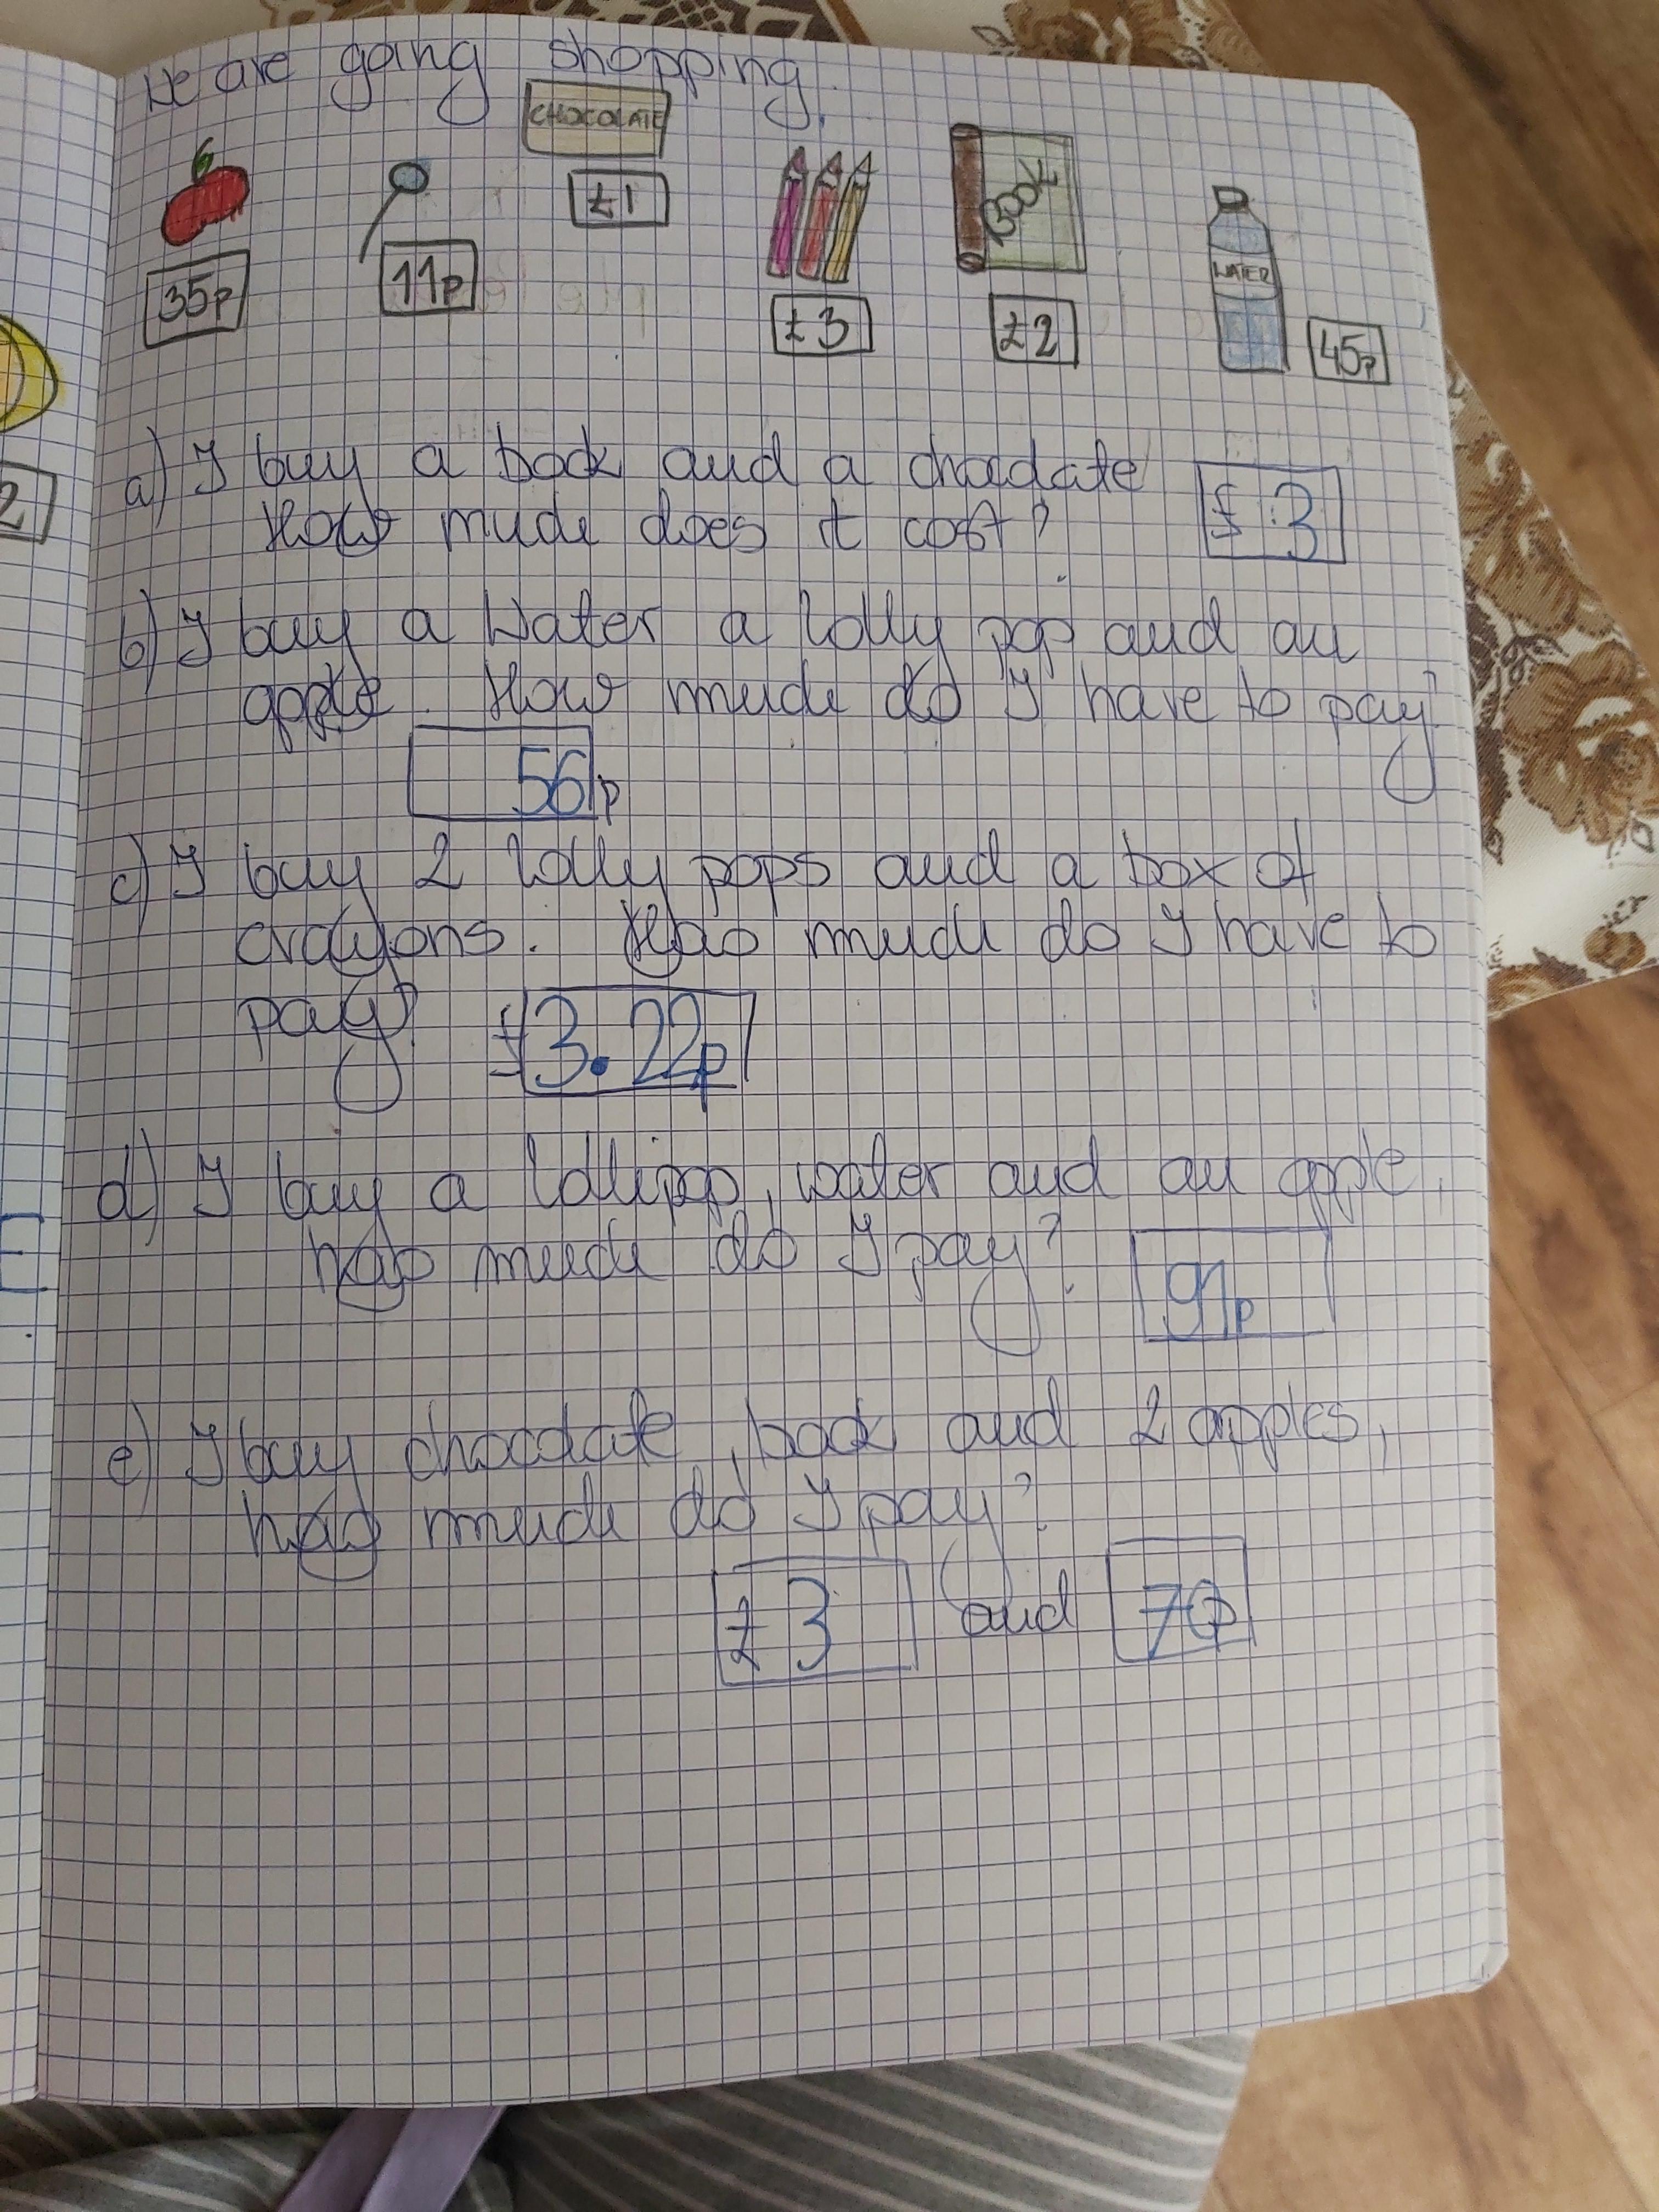 We are going shopping.
CHOCOLATE
£1
35p
11p
£3
BOOK
£2
WATER
45p
a) I buy a book and a chocolate
How much does it cost?
£ 3
b) I buy a water a lolly pop and an
apple. How much do I have to pay?
56p
c) I buy 2 lolly pops and a box of
crayons. How much do I have to
pay? £3.22p
d) I buy a lollipop, water and an apple,
how much do I pay?
91p
e) I buy chocolate, book and 2 apples,
how much do I pay?
£3 and 70p
2
E